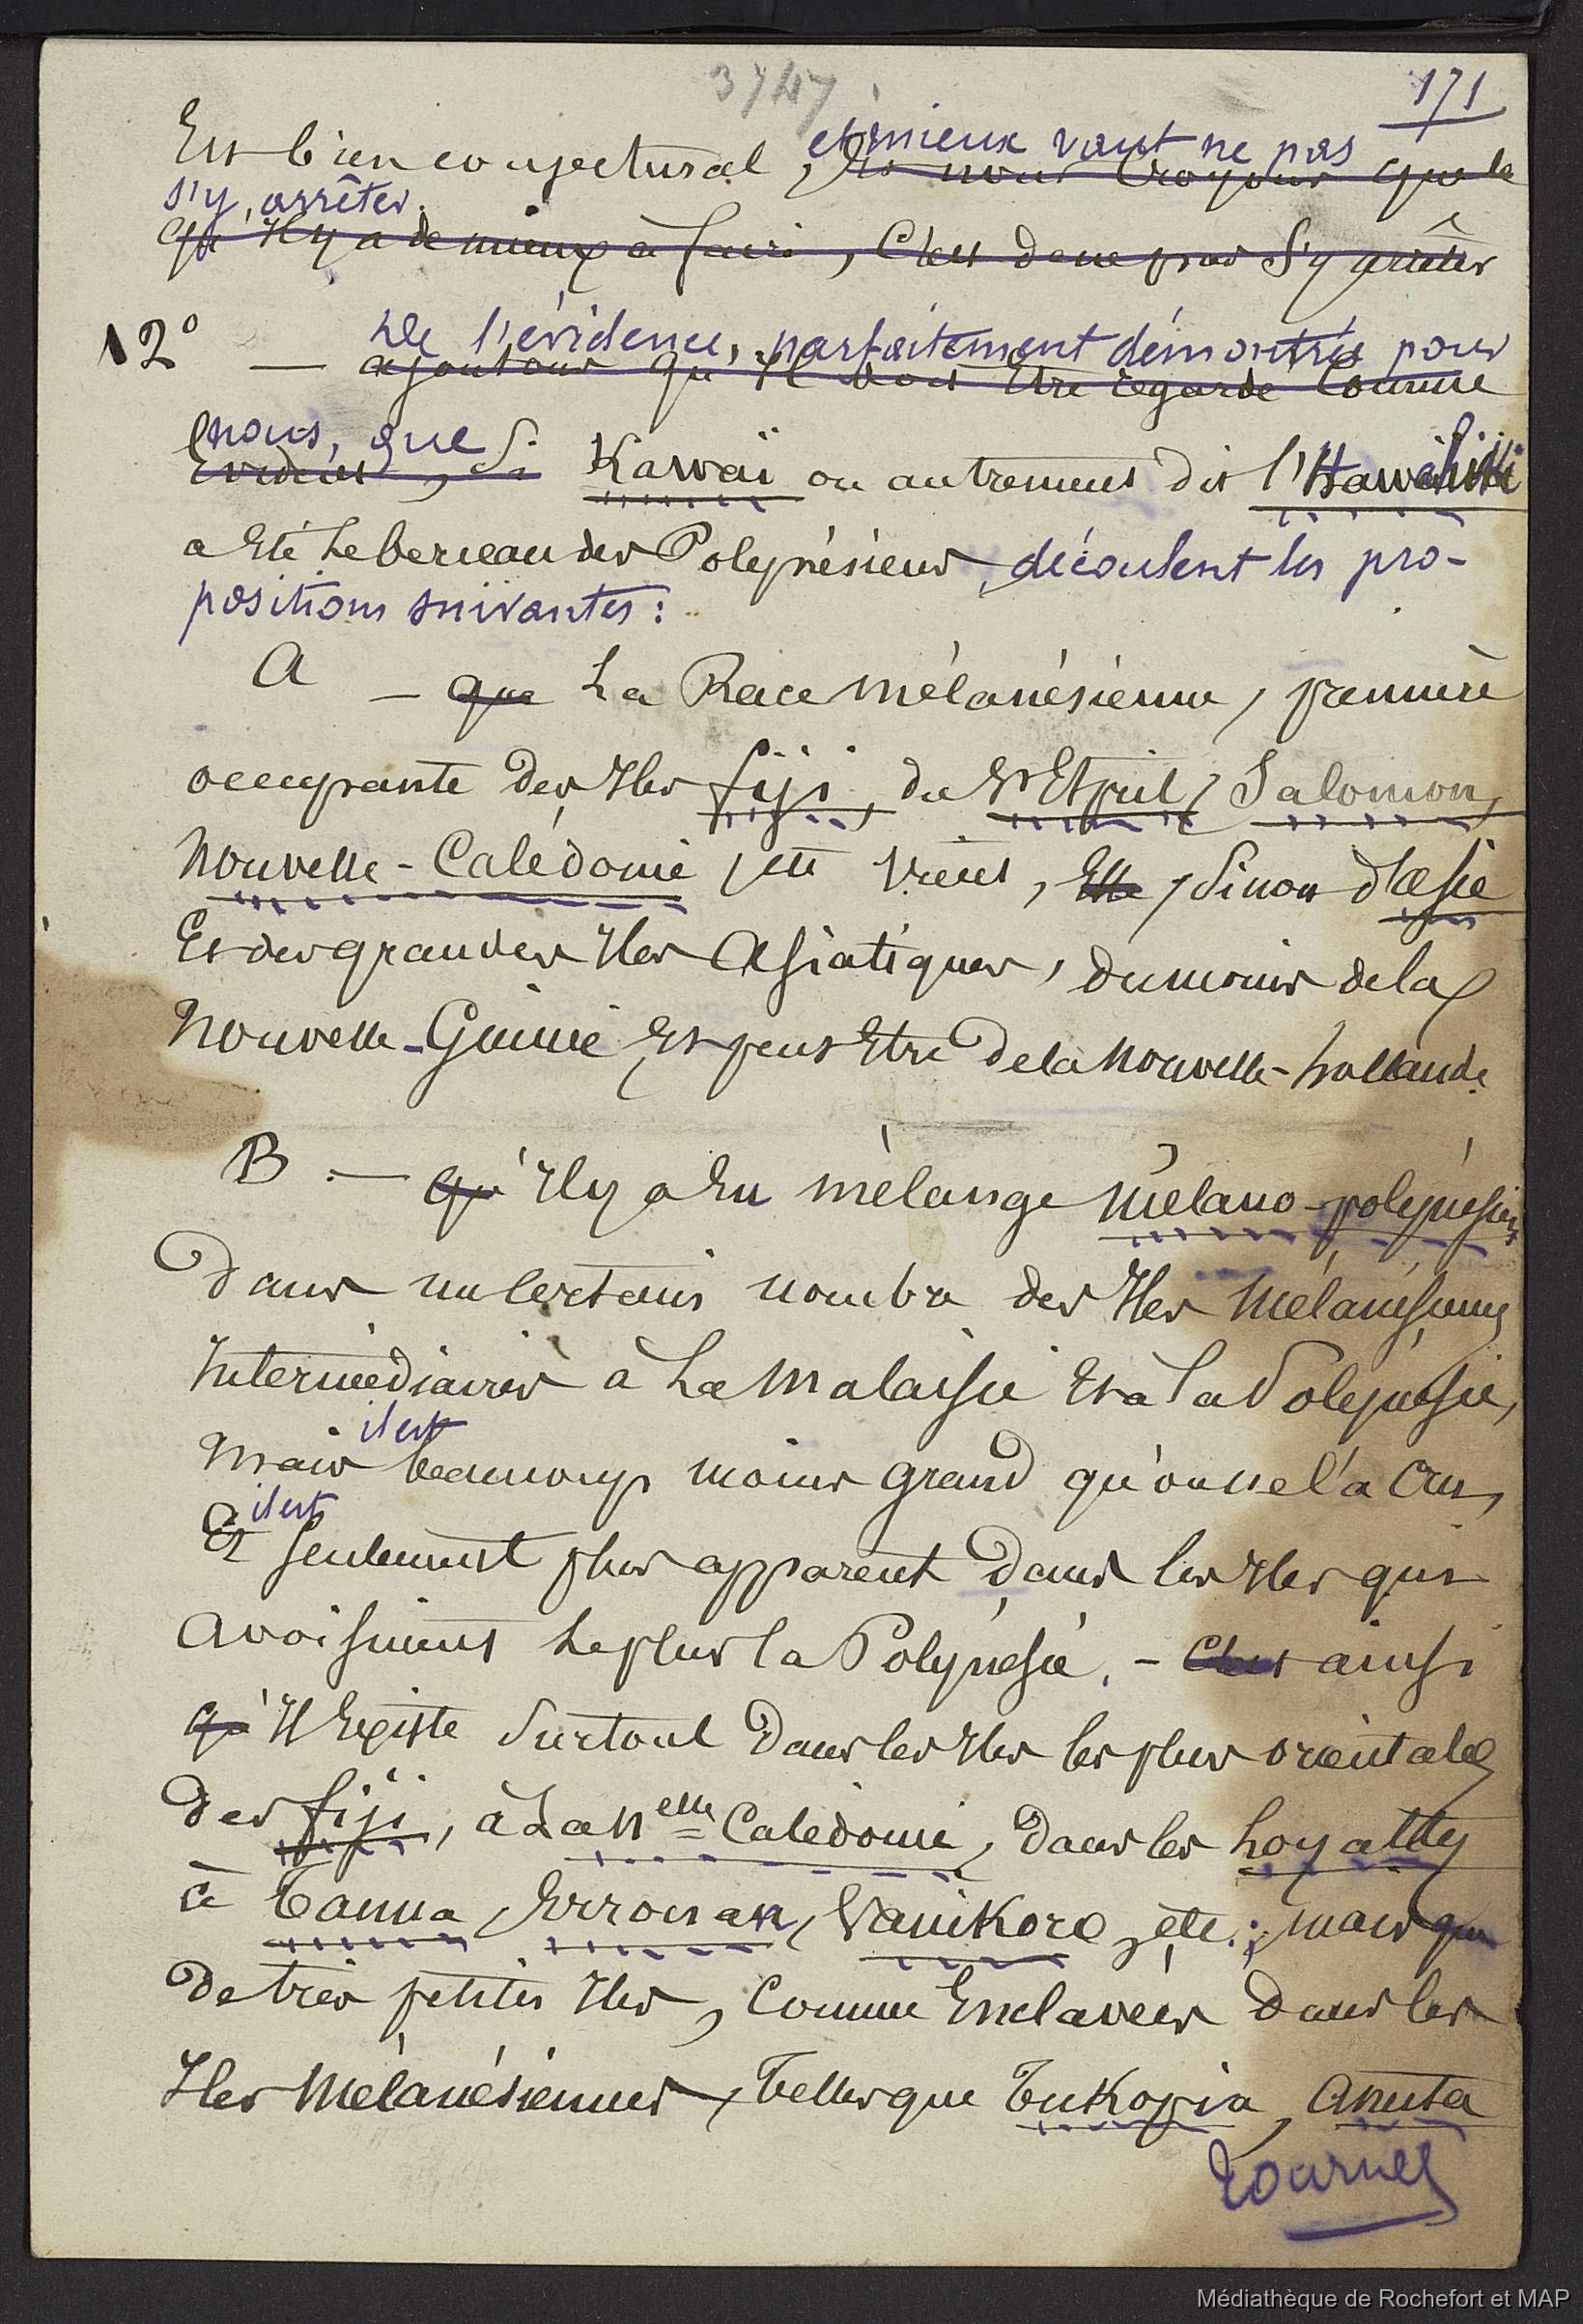 3747
171
et mieux vaut ne pas
Est bien conjectural, Et nous croyons que le
s'y arrêter.
qu'Il y a de mieux à faire, C'est de ne pas S'y arrêter
De l'évidence, parfaitement démontrée pour
12° — ajoutons qu'Il doit Etre regardé Comme
nous, que
Evident, Si Kawaï ou autrement dit l'Hawahiki
a Eté Le berceau des Polynésiens, découlent les pro-
positions suivantes:
A — que La Race mélanésienne, première
occupante des Iles fiji, du St Esprit, Salomon,
Nouvelle-Calédonie, etc vient, Elle, Sinon d'asie
Et des grandes Iles Asiatiques, du moins de la
Nouvelle-Guinée Et peut Etre De la Nouvelle-hollande.
B — qu'Il y a Eu mélange mélano-polynésien
Dans un Certain nombre des Iles mélanésiennes
Intermédiaires à La Malaisie Et à la Polynésie,
il est
Mais beaucoup moins grand qu'on ne l'a Cru,
il est
Et Seulement plus apparent Dans les Iles qui
avoisinent Le plus la Polynésie. - C'est ainsi
qu'Il Existe Surtout Dans les Iles les plus orientales
Des fiji, à La Nelle Calédonie, Dans les Loyalty
à Tanna, Erronan, Vanikoro, etc.; mais que
De très petites Iles, Comme Enclavées Dans les
Iles Mélanésiennes, Telles que Tukopia, Anuta
tournez
Médiathèque de Rochefort et MAP